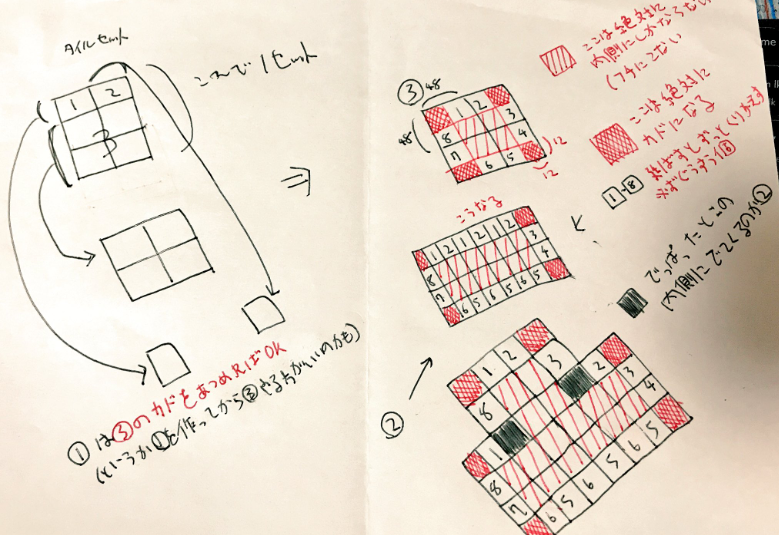 タイルセット
これで1セット
1 2
3
①は③のカドをあつめればOK
(というか①を作ってから③やる方がいいのかも)
③
48
48
1 2
8 3
7 4
6 5
12
12
ここは絶対に
内側にしかならない
(フチにこない)
ここは絶対に
カドになる
1-8
必ずこうすう
こうなる
1 2 1 2 1 2
8 3
7 4
6 5 6 5 6 5
でっぱったとこの
内側にでてくるのが②
②
1 2
8 3 2
1 3
8 4
7 5
6 5 6 5 6